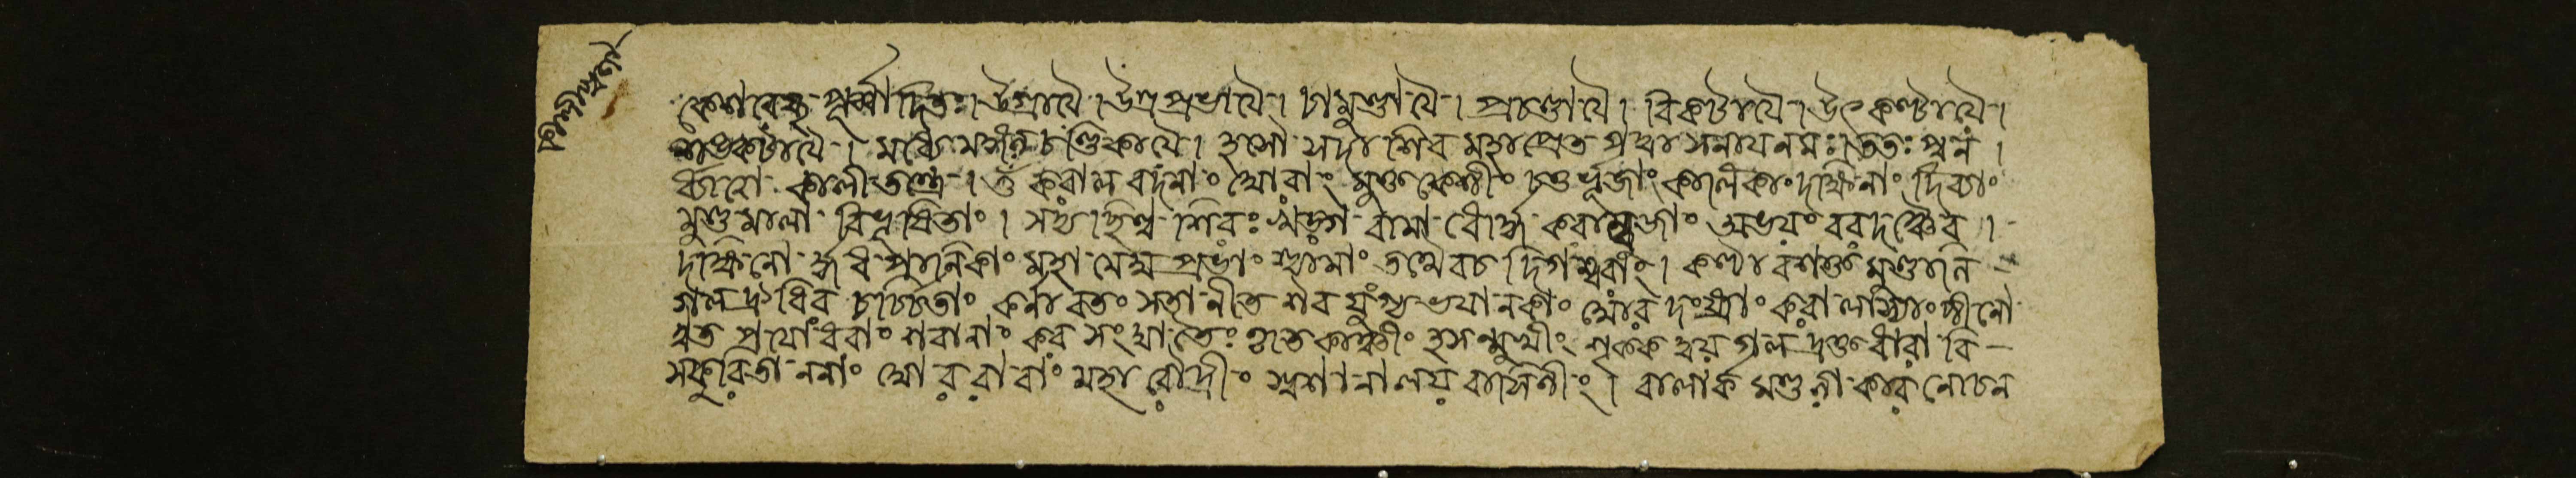 কেশবেষু পূর্ব্বাদিতঃ। উগ্রায়ৈ। উগ্রপ্রভায়ৈ। চামুণ্ডায়ৈ। প্রচণ্ডায়ৈ। বিকটায়ৈ। উৎকণ্টায়ৈ।
মধ্যে চণ্ডিকায়ৈ। হসৌ সদাশিব মহাপ্রেত পদ্মাসনায় নমঃ। ততঃ পুন।
র্ধ্যানং কালীতন্ত্রে। ওঁ করাল বদনাং ঘোরাং মুক্তকেশীং চতুর্ভূজাং কালিকাং দক্ষিনাং দিব্যাং
মুণ্ডমালা বিভূষিতাং। সদ্য ছিন্ন শিরঃ খড়্গ বামাধোর্দ্ধ করাম্বুজাং অভয়ং বরদঞ্চৈব।
দক্ষিনোর্দ্ধাধ পানিকাং মহামেঘ প্রভাং শ্যামাং তথৈবচ দিগম্বরীং। কণ্ঠাবশক্ত মুণ্ডালি -
গলদ্রুধির চর্চ্চিতাং কর্নাবতং সতানীত শবযুগ্ম ভয়ানকাং ঘোর দংষ্ট্রাং করালাস্যাং পীনো
ন্নত পয়োধরাং শবানাং কর সংঘাতৈঃ কৃত কাঞ্চীং হসন্মুখীং সৃক্কদ্বয় গলদ্রক্ত ধারা বি -
স্ফুরিতাননাং ঘোররাবাং মহারৌদ্রীং শ্মশানালয় বাসিনীং। বালার্ক মণ্ডলাকার লোচন